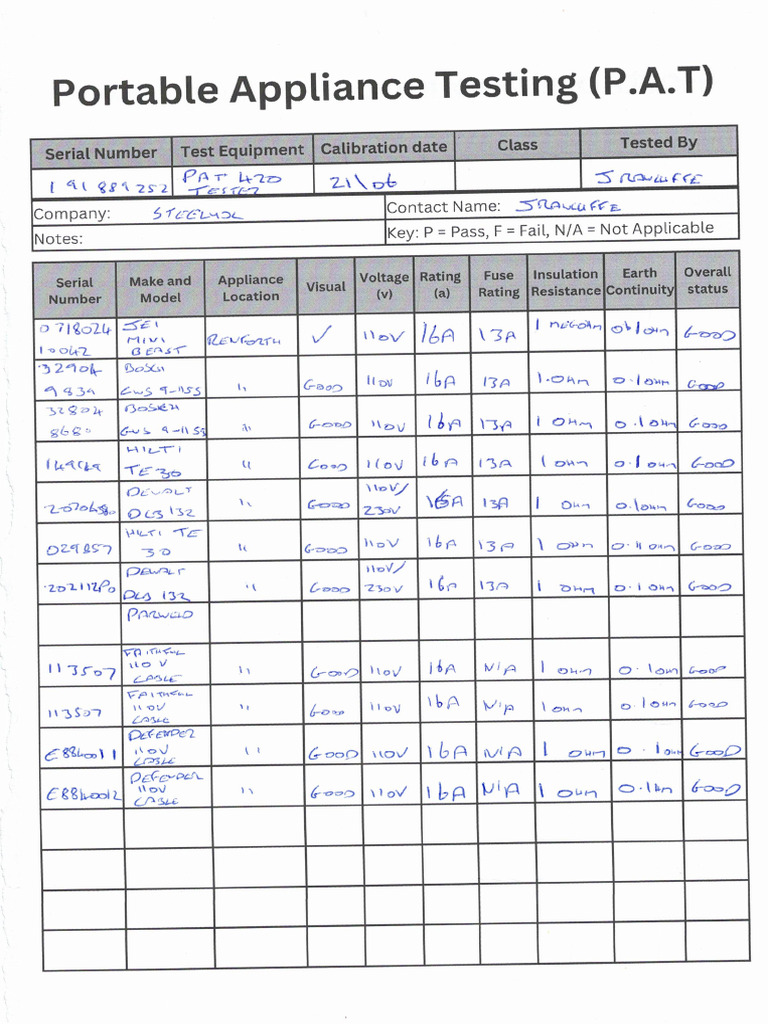 Portable Appliance Testing (P.A.T)
Serial Number Test Equipment Calibration date Class Tested By
191889252 PAT 420 TESTER 21/06 J RANCLIFFE
Company: Contact Name: J RANCLIFFE
Notes: Key: P = Pass, F = Fail, N/A = Not Applicable
Serial Number Make and Model Appliance Location Visual Voltage (v) Rating (a) Fuse Rating Insulation Resistance Earth Continuity Overall status
0718024 10042 JEI MINI BEAST RENFORTH ✓ 110V 16A 13A 1 MEGOHM 0.1ohm GOOD
32904 9839 BOSCH GWS 9-115S " GOOD 110V 16A 13A 1.OHM 0.1OHM GOOD
32804 8680 BOSCH GWS 9-115S " GOOD 110V 16A 13A 1 OHM 0.1OHM GOOD
HILTI TE 30 " GOOD 110V 16A 13A 1 OHM 0.1OHM GOOD
DEWALT DLB 132 " GOOD 110V/ 230V 16A 13A 1 OHM 0.1OHM GOOD
029857 HILTI TE 30 " GOOD 110V 16A 13A 1 OHM 0.1OHM GOOD
DEWALT DLB 132 " GOOD 110V/ 230V 16A 13A 1 OHM 0.1OHM GOOD
PARWELD
113507 FAITHFUL 110V CABLE " GOOD 110V 16A N/A 1 OHM 0.1OHM GOOD
113507 FAITHFUL 110V CABLE " GOOD 110V 16A N/A 1OHM 0.1OHM GOOD
E8840011 DEFENDER 110V CABLE " GOOD 110V 16A N/A 1 OHM 0.1OHM GOOD
E8840012 DEFENDER 110V CABLE " GOOD 110V 16A N/A 1 OHM 0.1OHM GOOD